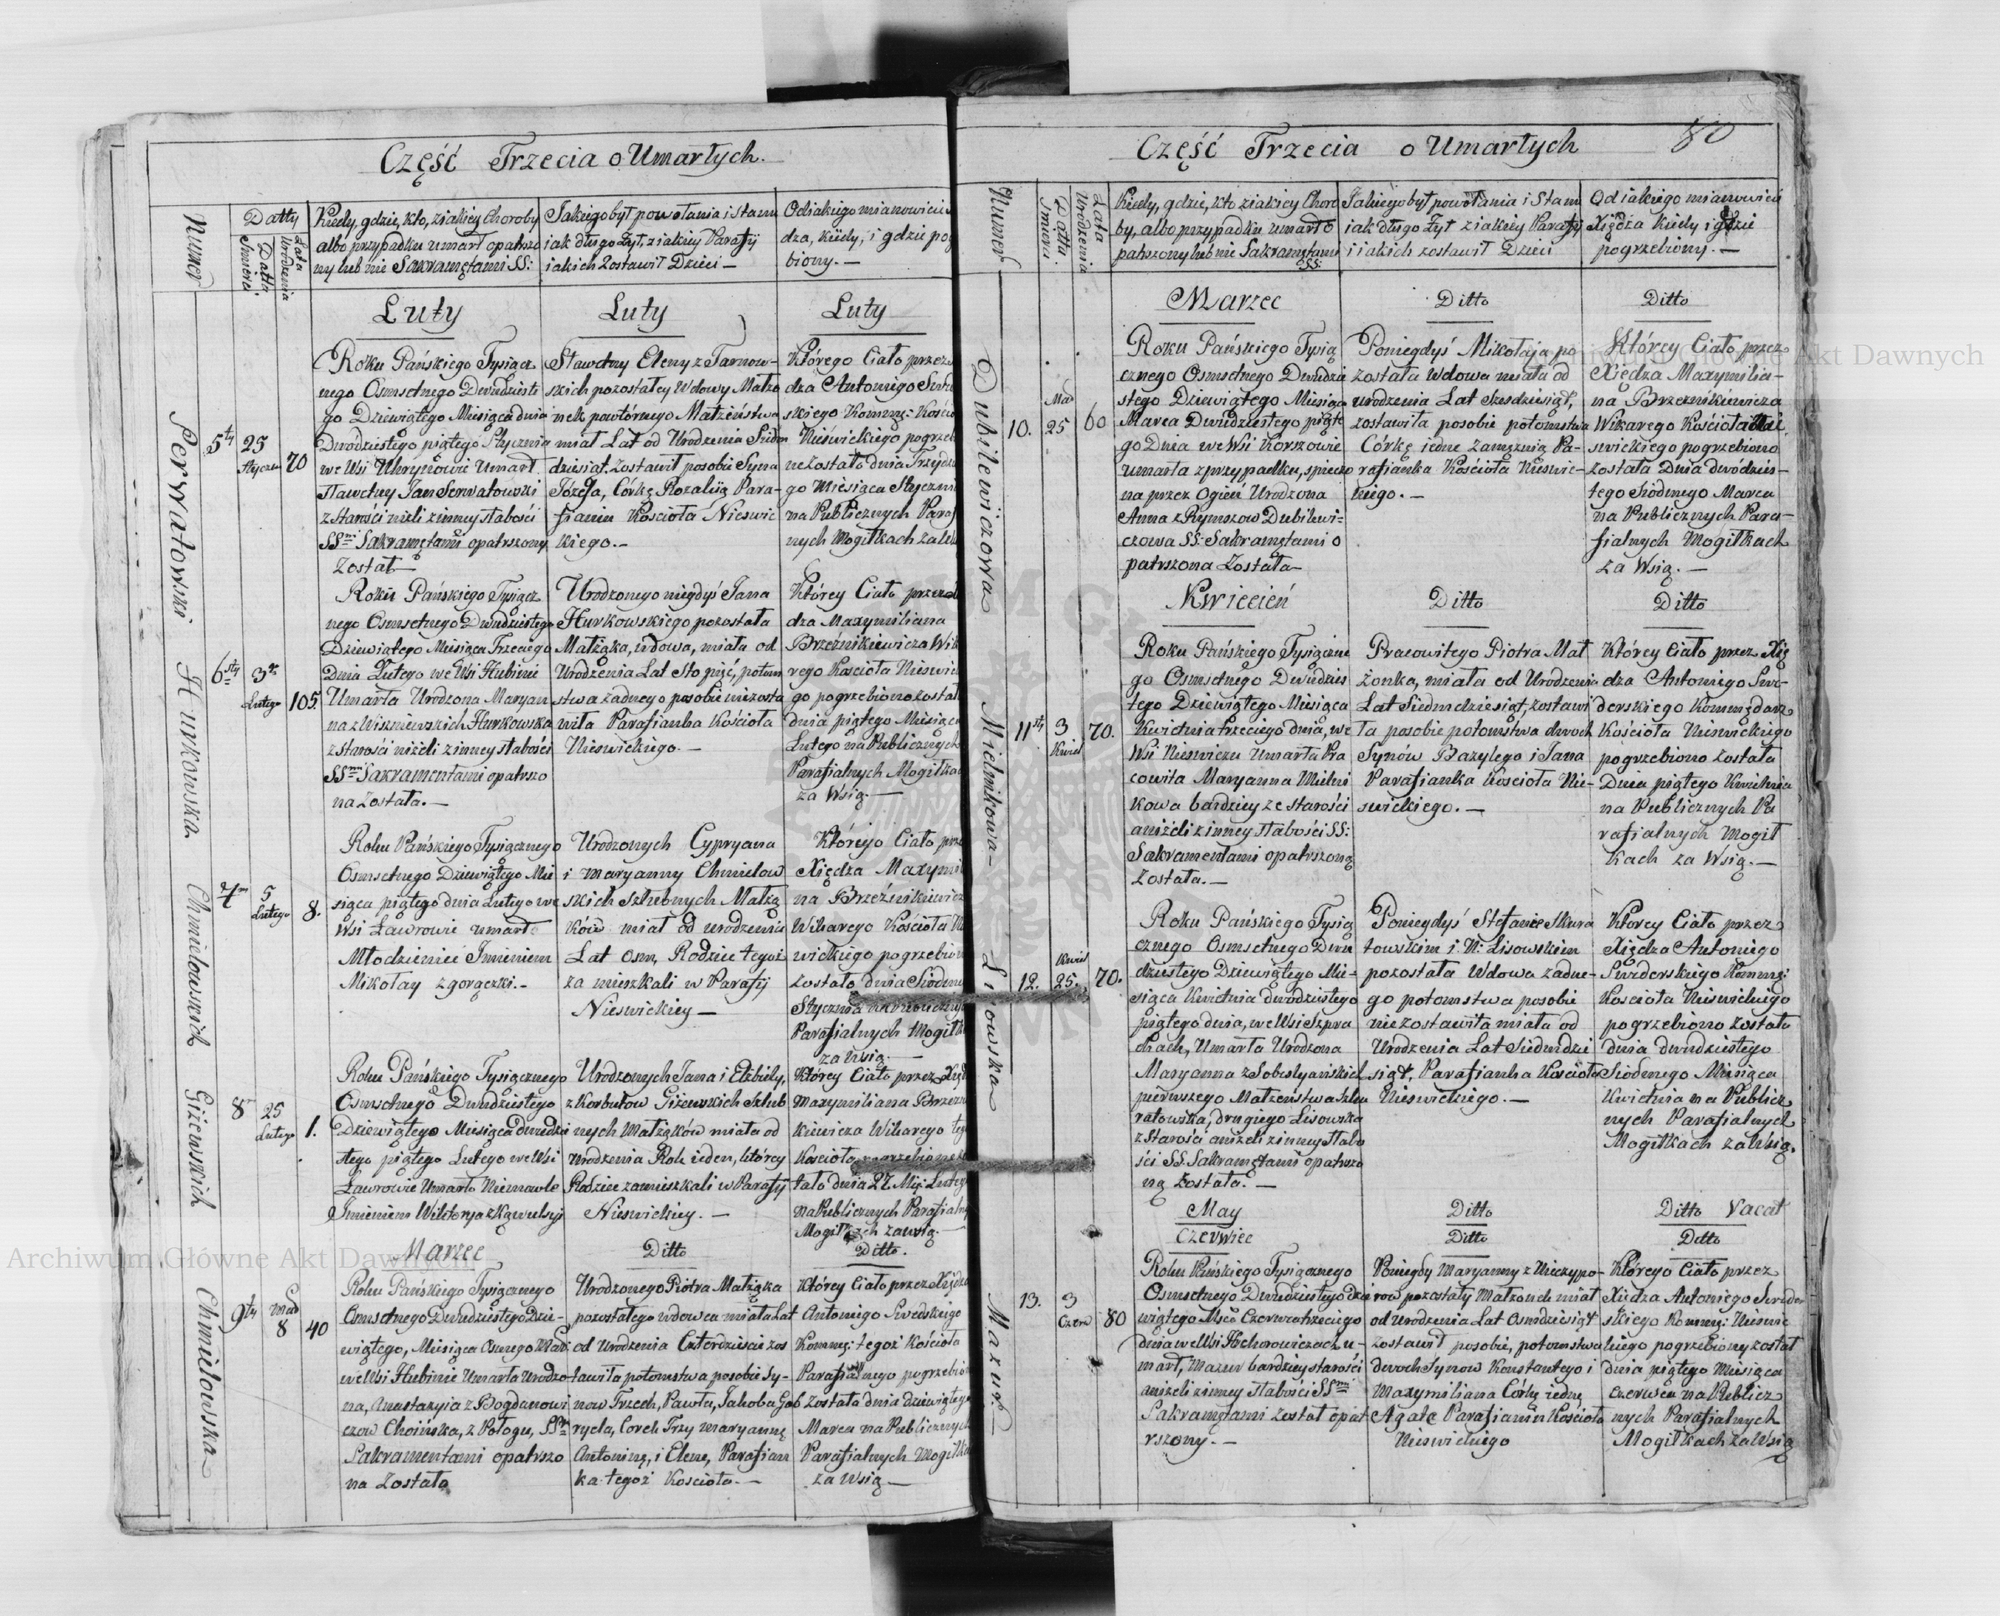 Część Trzecia o Umarłych.
Numer
Datty
Datta Śmierci.
Lata Urodzenia
Kiedy, gdzie, kto, z iakiey Choroby
albo przypadku umarł opatrzo
ny lub nie Sakramętami SS:
Jakiego był powołania i Stanu
iak długo Żył, z iakiey Parafij
i iakich Zostawił Dzieci —
Od iakiego mianowicie
dza, kiedy, i gdzie po
biony. —
Luty
Luty
Luty
Serwatowski
5ty
25
Stycznia
70
Roku Pańskiego Tysiącz
nego Osmsetnego Dwudzieste
go Dziewiątego Miesiąca dnia
Dwudziestego piątego Stycznia
we Wsi Uhrynowie Umarł
Sławetny Jan Serwatowski
z Starości niżli z inney słabości
SSmi Sakramętami opatrzony
Został —
Sławetny Eleny z Tarnow-
skich pozostałey Wdowy Małżo
nek powtórnego Małżeństwa
miał Lat od Urodzenia Siedm
dziesiąt. Zostawił posobie Syna
Józefa, Córkę Rozaliią Para-
fianin Kościoła Nieswic
kiego. —
Którego Ciało przez
dza Antoniego
skiego Kommę: Kościo
Nieświckiego pogrzeb
ne Zostało dnia Trzydzie
go Miesiąca Styczni
na Publicznych Paraf
nych Mogiłkach za W
Hurkowska
6sty
3go
Lutego
105.
Roku Pańskiego Tysiącz
nego Osmsetnego Dwudziestego
Dziewiątego Miesiąca Trzeciego
Dnia Lutego we Wsi Hubinie
Umarła Urodzona Maryan
na z Wiszniewskich Hurkowska
z starości niżeli z inney słabości
SSmi Sakramentami opatrzo
na Została. —
Urodzonego niegdyś Jana
Hurkowskiego pozostała
Małżąka, wdowa, miała od
Urodzenia Lat Sto pięć, potom
stwa żadnego posobie niezosta
wiła Parafianka Kościoła
Nieswickiego. —
Którey Ciało przez
dza Maxymiliana
Brzeźnikiewicza Wik
rego Kościoła Nieświc
go pogrzebiono został
dnia piątego Miesiąca
Lutego na Publicznych
Parafialnych Mogiłka
za Wsią. —
Chmielowskich
7m
5
Lutego
8.
Roku Pańskiego Tysiącznego
Osmsetnego Dziewiątego Mie
siąca piątego dnia Lutego we
Wsi Ławrowie umarł
Młodzieniec Imieniem
Mikołay z gorączki. —
Urodzonych Cypryana
i Maryanny Chmielow
skich szlubnych Małżą
ków miał od urodzenia
Lat Osm, Rodzice tegoż
za mieszkali w Parafij
Nieswickiey —
Któryo Ciało prze
Xiędza Maxymil
na Brzeźnikiewicz
Wikarego Kościoła N
wickiego pogrzebion
zostało dnia Siodme
Stycznia na Publicznych
Parafialnych Mogiłk
za Wsią. —
Giżewskich
8m
25
Lutego
1.
Roku Pańskiego Tysiącznego
Osmsetnego Dwudziestego
Dziewiątego Miesiąca dwudzie
stego piątego Lutego we Wsi
Ławrowie Umarło Niemowle
Imieniem Wiktorya z Kąwulsyi
Urodzonych Jana i Elżbiety,
z Korbutow Giżewskich Szlub
nych Małżąków miała od
Urodzenia Rok ieden, którey
Rodzice zamieszkali w Parafij
Nieswickiey. —
Którey Ciało przez Xięd
Maxymiliana Brzeźni
kiewicza Wikarego teg
Kościoła pogrzebione zo
stało dnia 27. Mię: Lutego
na Publicznych Parafialny
Mogiłkach za wsią. —
Marzec
Ditto
Ditto.
Chmielowska
9ty
Mar
8
40
Roku Pańskiego Tysiącznego
Osmsetnego Dwudziestego Dzie-
wiątego, Miesiąca Osmego Mar:
we Wsi Hubinie Umarła Urodzo
na, Anastazyia z Bogdanowi
czow Choińska, z Połogu, SSmi
Sakramentami opatrzo
na Została
Urodzonego Piotra Małżąka
pozostałego wdowca miała Lat
od Urodzenia Czterdzieści zos
tawiła potomstwa posobie Sy-
now Trzech, Pawła, Jakoba Gab
ryela, Corek Trzy Maryannę
Antoninę, i Elenę, Parafian
ka tegoż Kościoła. —
Którey Ciało przez Xiędza
Antoniego Swederskiego
Kommę: tegoż Kościoła
Parafialnego pogrzebion
Została dnia dziewiątego
Marca na Publicznych
Parafialnych Mogiłka
za Wsią —
Część Trzecia o Umarłych
80
Numer
Datta Śmierci.
Lata Urodzenia
Kiedy, gdzie, kto z iakiey Choro
by, albo przypadku umarł o
patrzony lub nie Sakramętami
SS:
Jakiego był powołania i Stanu
iak długo Żył z iakiey Parafij
i iakich zostawił Dzieci
Od iakiego mianowicie
Xiędza kiedy i gdzie
pogrzebiony. —
Marzec
Ditto
Ditto
Dubilewiczowa
10.
Mar
25
60
Roku Pańskiego Tysią
cznego Osmsetnego Dwudzie
stego Dziewiątego Miesiąca
Marca Dwudziestego piąte
go Dnia we Wsi Korszowie
umarła z przypadku, spieczo
na przez Ogień Urodzona
Anna z Rymszow Dubilewi=
czowa SS: Sakramętami o
patrzona Została —
Poniegdyś Mikołaja po
zostala Wdowa miała od
urodzenia Lat Szesdziesiąt,
zostawiła posobie potomstwa
Córkę iednę Zamężnią Pa-
rafianka Kościoła Nieswic-
kiego. —
Którey Ciało przez
Xiędza Maxymilia-
na Brzeźnikiewicza
Wikarego Kościoła Nie
swickiego pogrzebiono
Została Dnia dwódzies-
tego Siodmego Marca
na Publicznych Para-
fialnych Mogiłkach
za Wsią. —
Kwiecień
Ditto
Ditto
Mielnikowa —
11sty
3
Kwiet
70.
Roku Pańskiego Tysiączne
go Osmsetnego Dwudzies
tego Dziewiątego Miesiąca
Kwietnia trzeciego dnia, we
Wsi Nieswiczu Umarła Pra
cowita Maryanna Mielni
kowa bardziey ze starości
aniżeli z inney słabości SS:
Sakramentami opatrzoną
Została. —
Pracowitego Piotra Mał
żonka, miała od Urodzenia
Lat Siedmdziesiąt, zostawi
ła posobie potomstwa dwoch
Synów Bazylego i Jana
Parafianka Kościoła Nie-
swickiego. —
Którey Ciało przez Xię
dza Antoniego Swe-
derskiego Kommędarz
Kościoła Nieswickiego
pogrzebiono Została
Dnia piątego Kwietnia
na Publicznych Pa
rafialnych Mogił
kach za Wsią. —
Lisowska
12.
Kwiet
25.
70.
Roku Pańskiego Tysią
cznego Osmsetnego Dwu
dziestego Dziewiątego Mie-
siąca Kwietnia dwudziestego
piątego dnia, we Wsi Szpra
chach, Umarła Urodzona
Maryanna z Sobestyańskich
pierwszego Małżeństwa Sku
ratowska, drugiego Lisowska
z Starości aniżeli z inney słabo
ści SS. Sakramętami opatrzo
ną Została. —
Poniegdyś Stefanie Skura
towskim i N: Lisowskiem
pozostała Wdowa żadne-
go potomstwa posobie
niezostawiła miała od
Urodzenia Lat Siedmdzie
siąt, Parafianka Kościoła
Nieswickiego. —
Którey Ciało przez
Xiędza Antoniego
Swederskiego Kommę:
Kościoła Nieswickiego
pogrzebiono Została
dnia dwudziestego
Siodmego Miesiąca
Kwietnia na Publicz
nych Parafialnych
Mogiłkach za Wsią.
May
Ditto
Ditto Vacat
Czerwiec
Ditto
Ditto
Mazur. —
13.
3
Czerw
80
Roku Pańskiego Tysiącznego
Osmsetnego Dwudziestego dzie
wiątego Msca Czerwca trzeciego
dnia we Wsi Hochorowiczach u-
marł, Mazur bardziey starości
aniżeli z inney słabości SSmi
Sakramętami został opat
rzony. —
Poniegdy Maryanny z Niczypo-
row pozostały Małżonek miał
od Urodzenia Lat Osmdziesiąt
zostawił posobie, potomstwa
dwoch Synow Konstantego i
Maxymiliana Córkę iednę
Agatę Parafianin Kościoła
Nieswickiego
Którego Ciało przez
Xiędza Antoniego Sweder
skiego Kommę: Nieswic
kiego pogrzebiony został
dnia piątego Miesiąca
Czerwca na Publicz
nych Parafialnych
Mogiłkach za Wsią
Archiwum Główne Akt Dawnych
Archiwum Główne Akt Dawnych